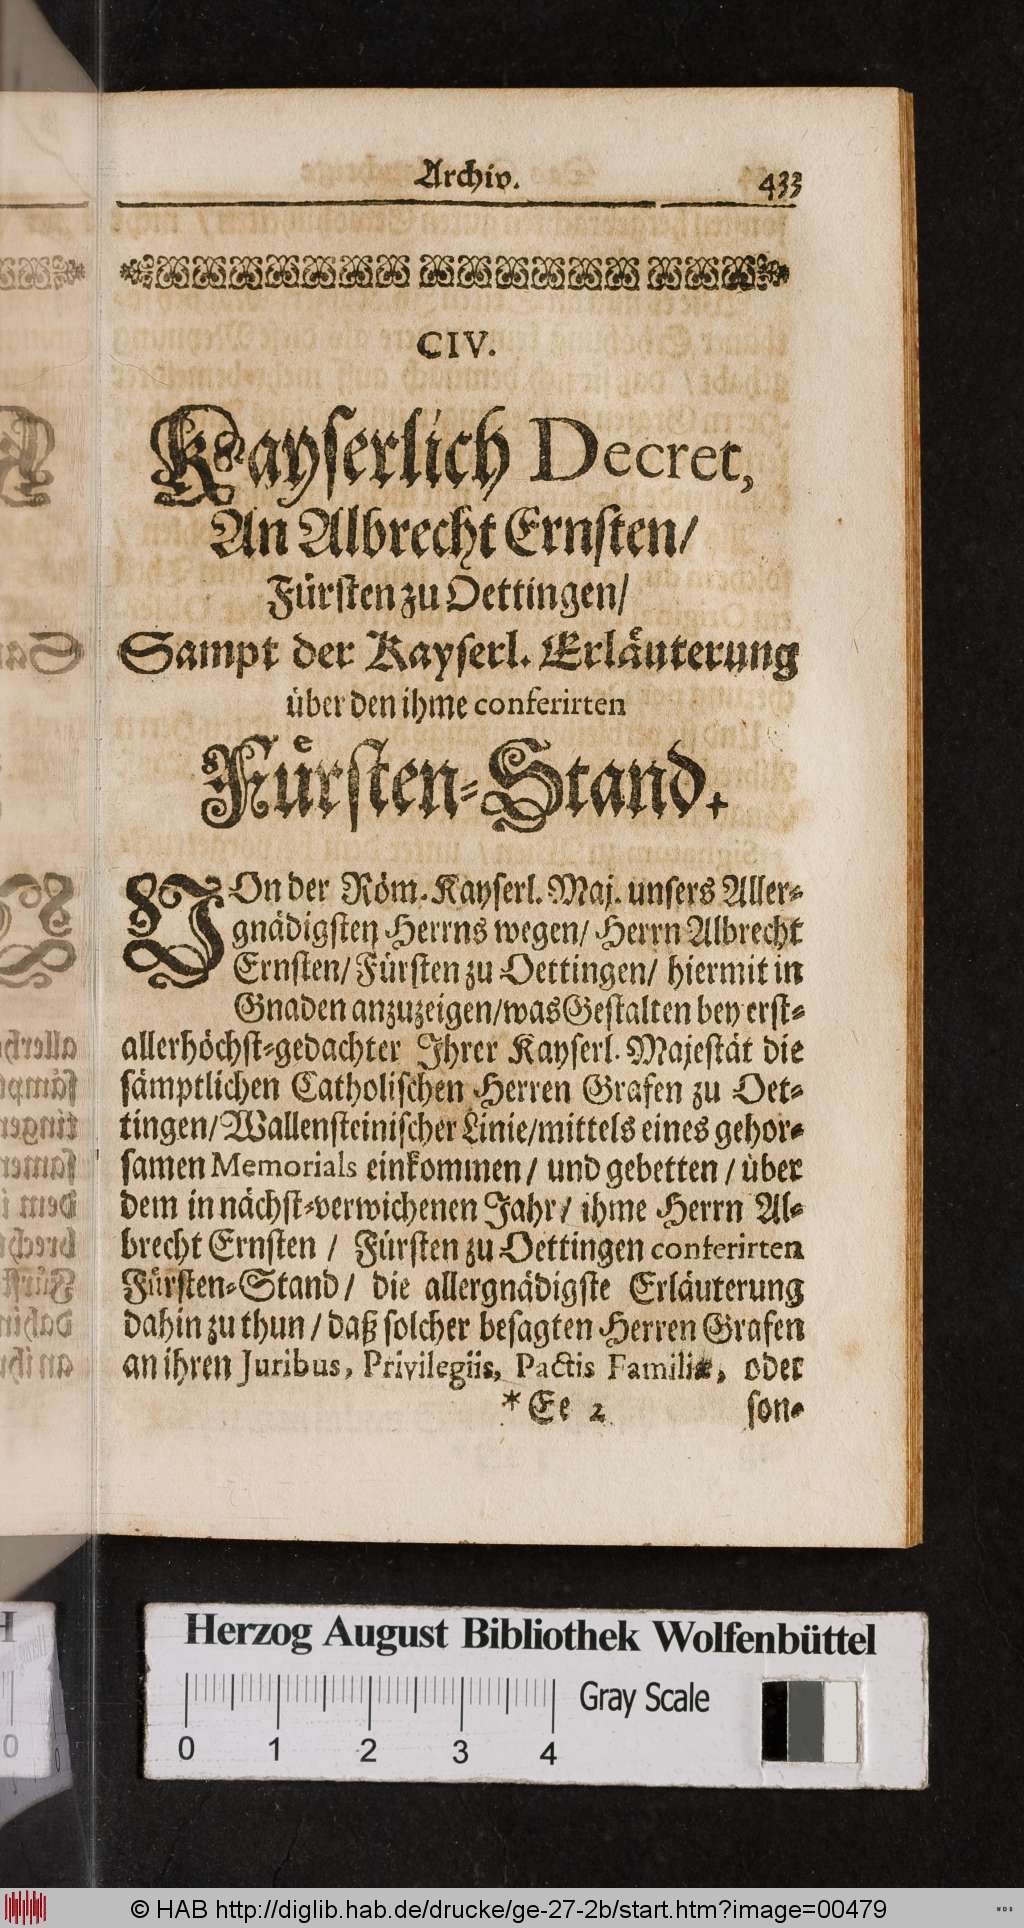 Archiv. 433
CIV.
Kayserlich Decret,
An Albrecht Ernsten/
Fürsten zu Oettingen/
Sampt der Kayserl. Erläuterung
über den ihme conferirten
Fürsten-Stand.
VOn der Röm. Kayserl. Maj. unsers Aller-
gnädigsten Herrns wegen/ Herrn Albrecht
Ernsten/ Fürsten zu Oettingen/ hiermit in
Gnaden anzuzeigen/was Gestalten bey erst-
allerhöchst-gedachter Ihrer Kayserl. Majestät die
sämptlichen Catholischen Herren Grafen zu Oet-
tingen/Wallensteinischer Linie/mittels eines gehor-
samen Memorials einkommen/ und gebetten/ über
dem in nächst-verwichenen Jahr/ ihme Herrn Al-
brecht Ernsten / Fürsten zu Oettingen conferirten
Fürsten-Stand/ die allergnädigste Erläuterung
dahin zu thun/ daß solcher besagten Herren Grafen
an ihren Juribus, Privilegiis, Pactis Familiæ, oder
*Ee 2 son-
Herzog August Bibliothek Wolfenbüttel
Gray Scale
0 1 2 3 4
© HAB http://diglib.hab.de/drucke/ge-27-2b/start.htm?image=00479